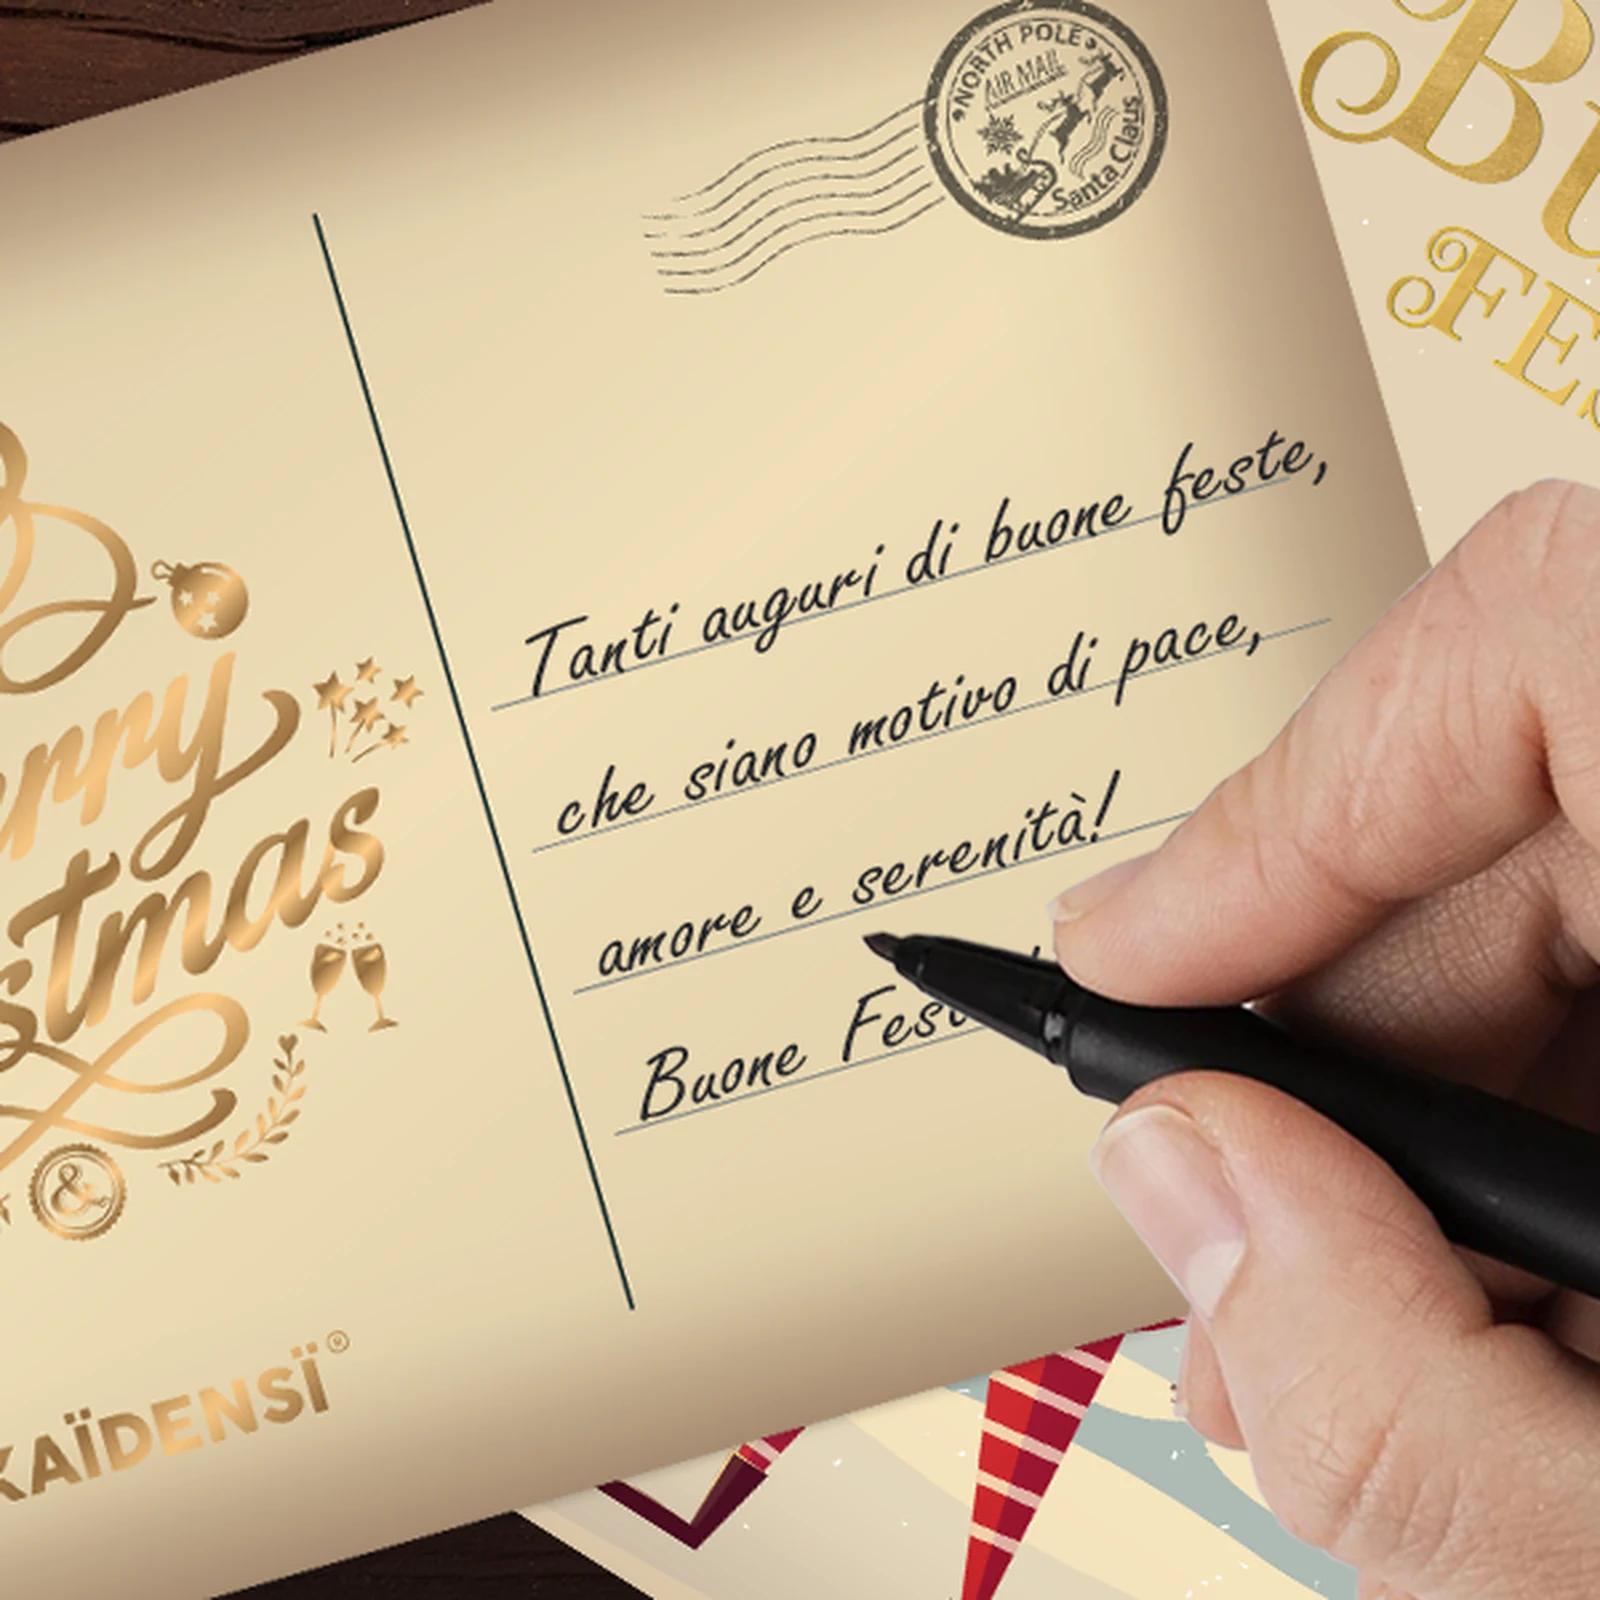 NORTH POLE
AIR MAIL
Santa Claus
Tanti auguri di buone feste,
che siano motivo di pace,
amore e serenità!
Buone
&
KAÏDENSÏ®